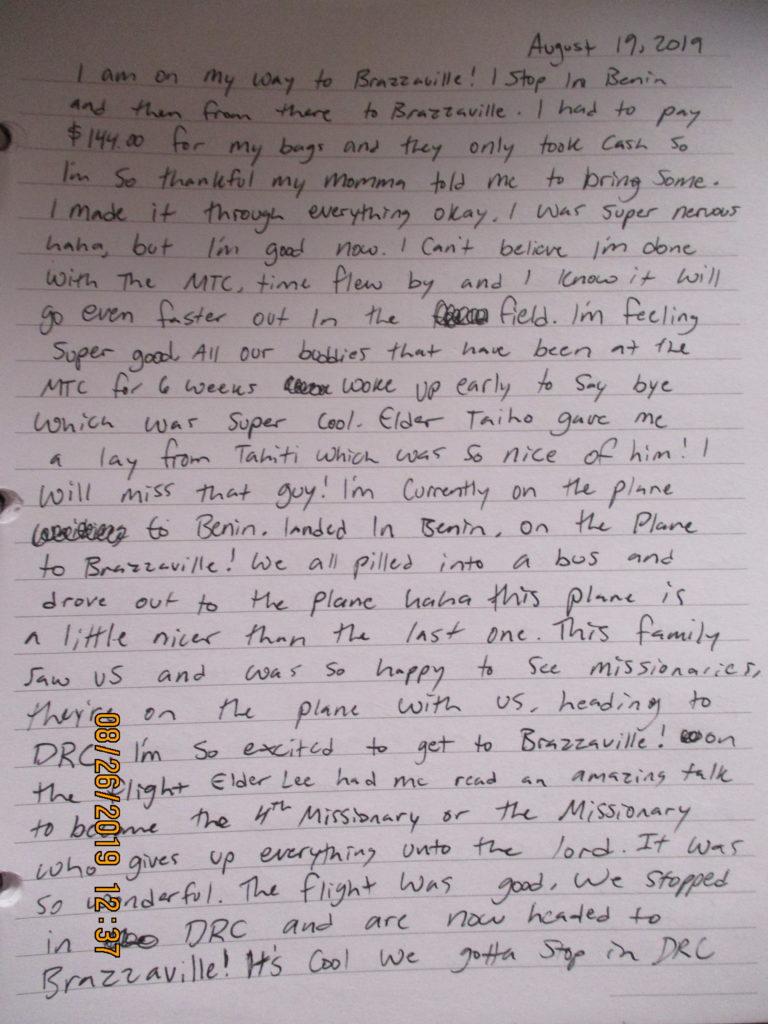 August 19, 2019
I am on my way to Brazzaville! I Stop In Benin
and then from there to Brazzaville. I had to pay
$144.00 for my bags and they only took Cash so
I'm so thankful my Momma told me to bring Some.
I made it through everything okay. I was super nervous
haha, but I'm good now. I Can't believe I'm done
with The MTC, time flew by and I know it will
go even faster out In the field. I'm feeling
Super good. All our buddies that have been at the
MTC for 6 weeks woke up early to Say bye
which was Super Cool. Elder Taiho gave me
a lay from Tahiti which was so nice of him! I
will miss that guy! I'm Currently on the plane
to Benin. landed In Benin, on the Plane
to Brazzaville! We all pilled into a bus and
drove out to the plane haha this plane is
a little nicer than the last one. This family
saw us and was so happy to see missionaries,
they're on the plane with us, heading to
DRC I'm so excited to get to Brazzaville! on
the flight Elder Lee had me read an amazing talk
to become the 4th Missionary or the Missionary
who gives up everything unto the lord. It was
so wonderful. The flight was good, We stopped
in DRC and are now headed to
Brazzaville! It's Cool We gotta Stop in DRC
08/26/2019 12:37